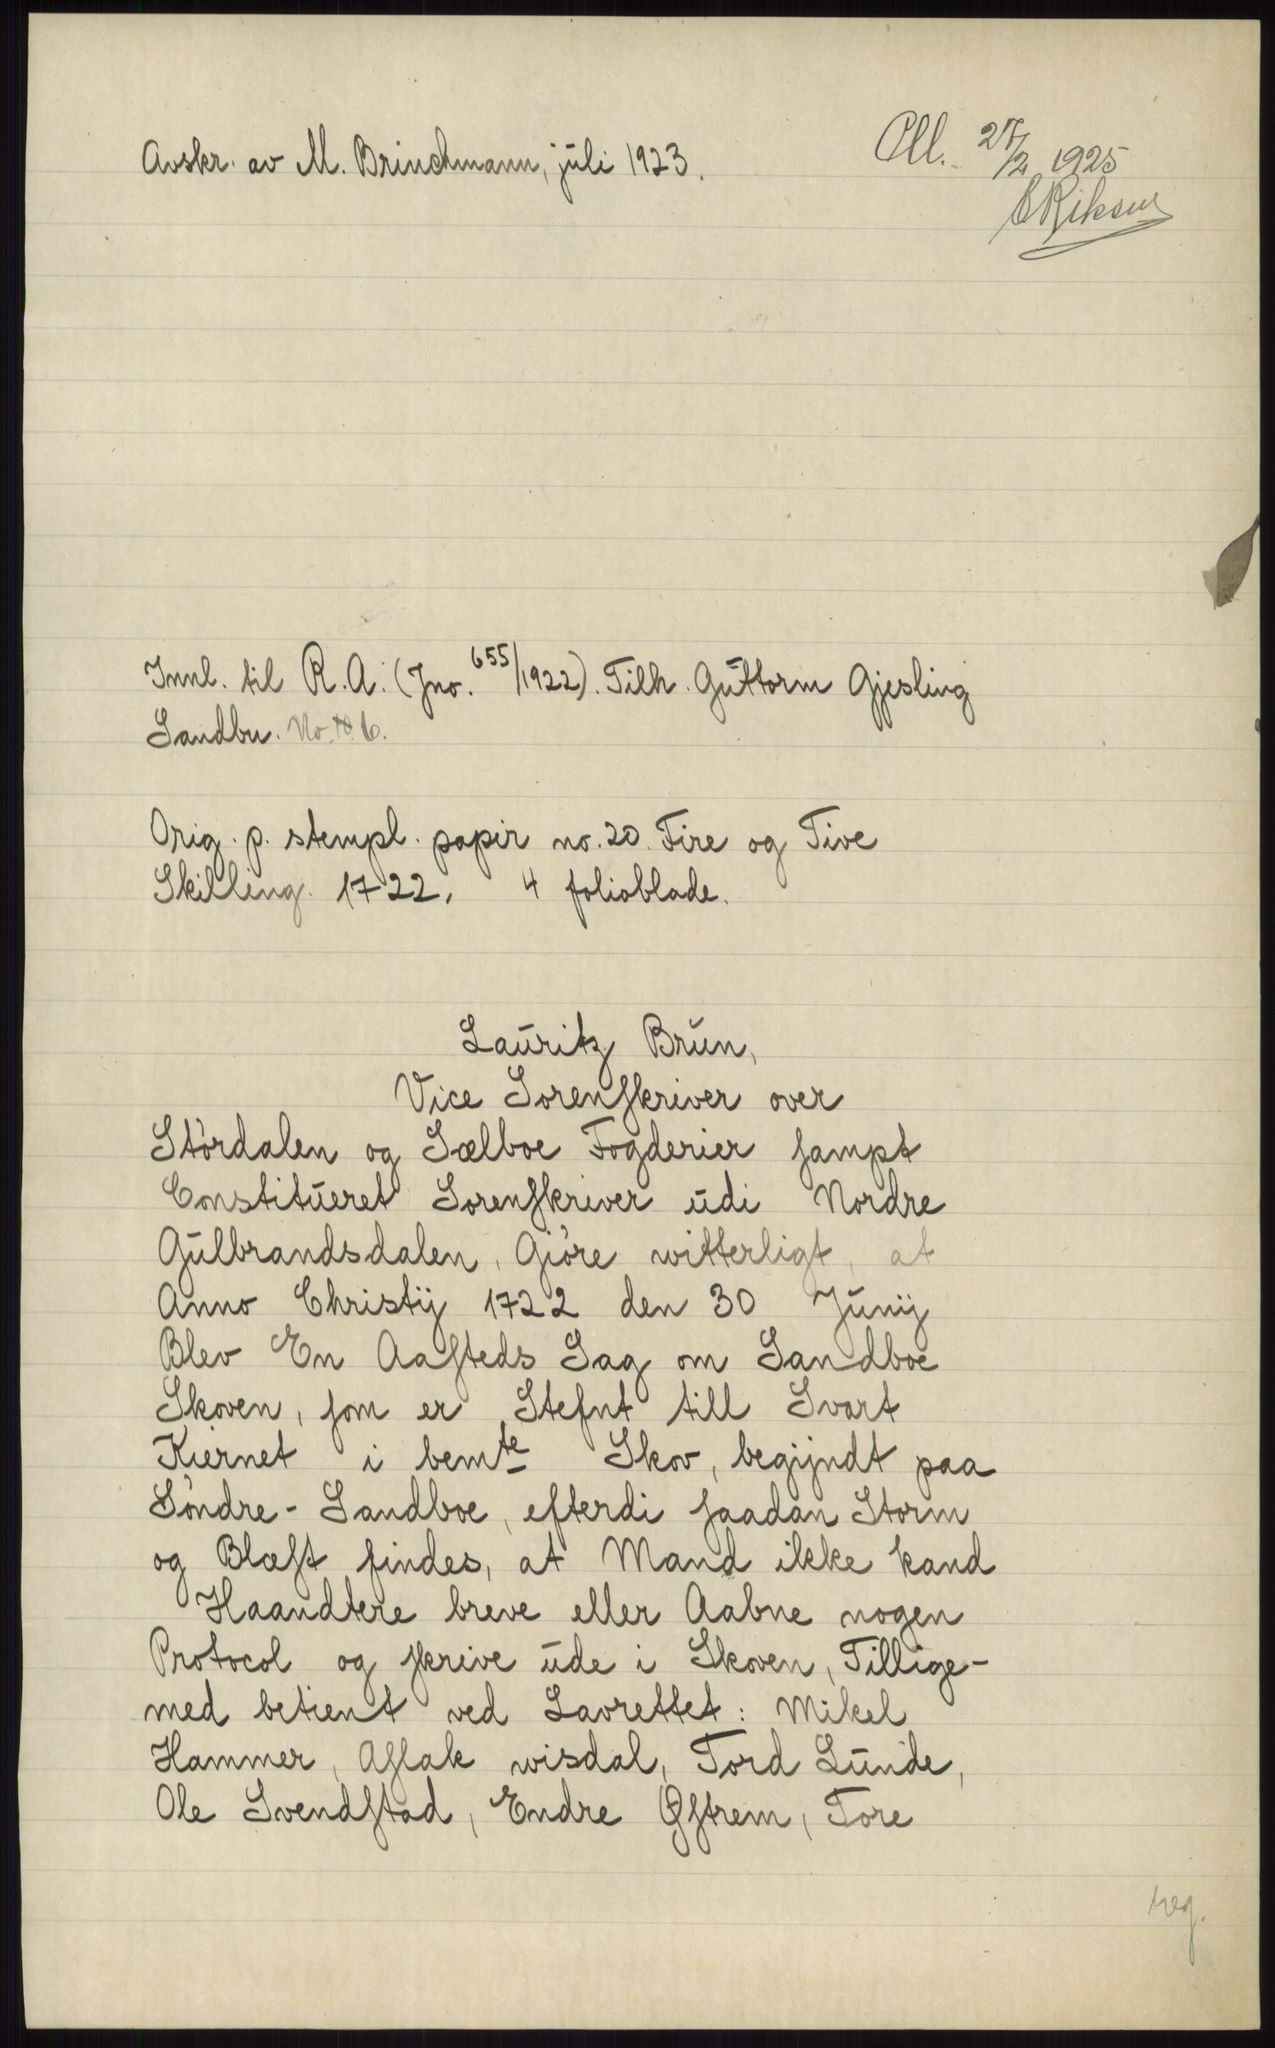 Avskr. av M. Brinchmann, juli 1923.
Oll. 27/2 1925
Innl. til R.A. (Jno. 655/1922). Tilh. Guttorm Gjesling
Sandbu. No. 6.
Orig. p. stempl. papir no. 20. Fire og Tive
Skilling. 1722. 4 folioblade.
Lauritz Brun,
Vice Sorenskriver over
Størdalen og Sælboe Fogderier sampt
Constitueret Sorenskriver udi Nordre
Gulbrandsdalen, Giøre witterligt, at
Anno Christij 1722 den 30 Junij
Blev En Aasteds Sag om Sandboe
Skoven, som er Stefnt till Svart
Kiernet i bemte Skov, begijndt paa
Søndre-Sandboe, efterdi saadan Storm
og Blæst findes, at Mand ikke kand
Haandtere breve eller Aabne nogen
Protocol og skrive ude i Skoven, Tillige-
med betient ved Lavrettet: Mikel
Hammer, Aslak wisdal, Tord Lunde,
Ole Svendstad, Endre Øfstrem, Tore
reg.